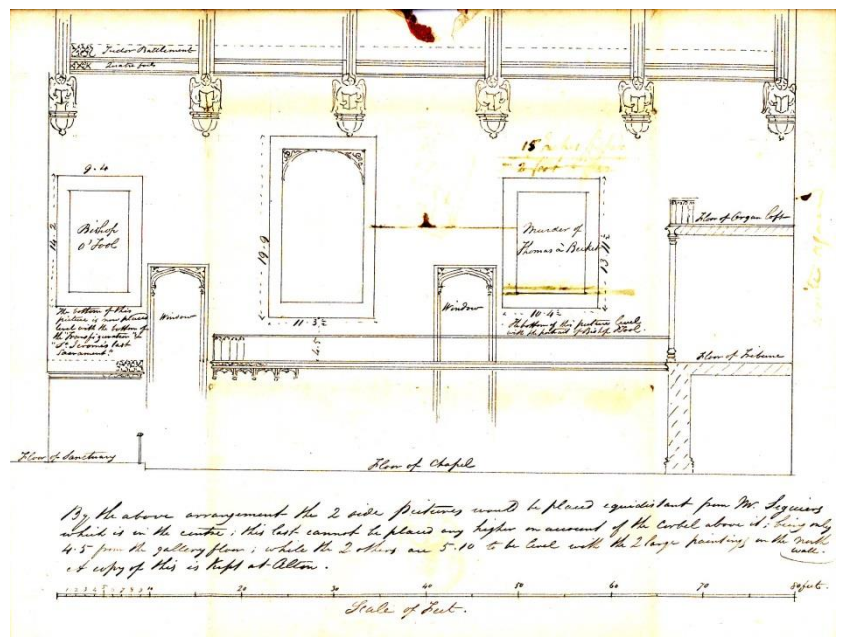 Tudor Battlement
Quatre foils
15
9.10
14.2
Bishop
O'Tool
The bottom of this
picture is now placed
level with the bottom of
the Transfiguration &
"St. Jerome's last
Sacrament."
Window
19.9
11.3½
4.5
Window
Murder of
Thomas à Becket
13.11½
10.4½
The bottom of this picture level
with the picture of Bishop O'Tool.
Floor of Organ Loft
Floor of Tribune
Floor of Sanctuary
Floor of Chapel
By the above arrangement the 2 side pictures would be placed equidistant from Mr. Seguiers
which is in the centre; this last cannot be placed any higher on account of the Corbel above it; being only
4.5 from the gallery floor; while the 2 others are 5.10 to be level with the 2 large paintings on the North
wall.
A copy of this is kept at Alton.
1 2 3 4 5 6 7 8 9 10 20 30 40 50 60 70 80 feet.
Scale of Feet.